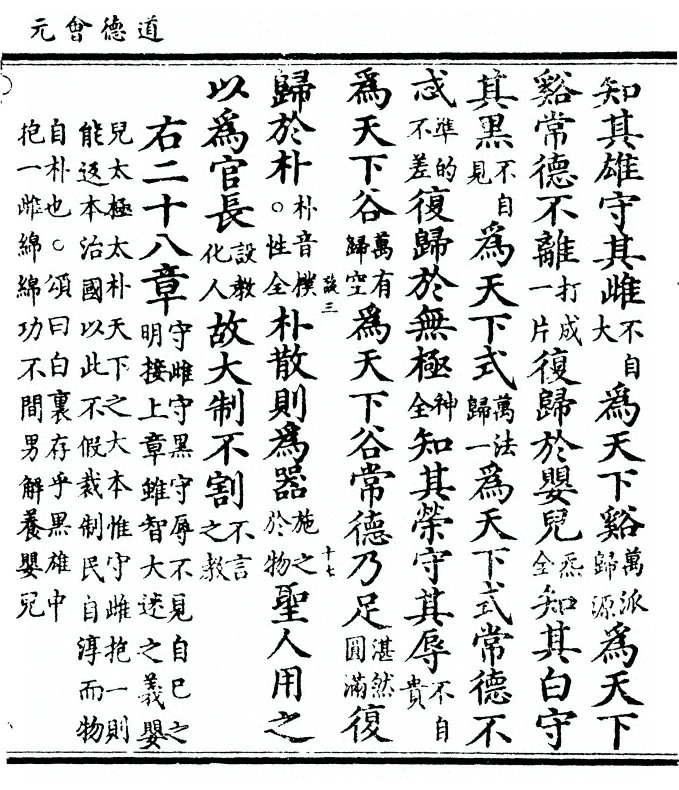 道德會元
知其雄守其雌不自大為天下谿萬派歸源為天下
谿常德不離打成一片復歸於嬰兒炁全知其白守
其黑不自見為天下式萬法歸一為天下式常德不
忒準的不差復歸於無極神全知其榮守其辱不自貴
為天下谷萬有歸空為天下谷常德乃足湛然圓滿復
談三 十七
歸於朴朴音樸○性全朴散則為器施之於物聖人用之
以為官長設教化人故大制不割不言之教
右二十八章守雌守黑守辱不見自已之
明接上章雖智大迷之義嬰
兒太極太朴天下之大本惟守雌抱一則
能返本治國以此不假裁制民自淳而物
自朴也○頌曰白裏存乎黑雄中
抱一雌綿綿功不間男解養嬰兒